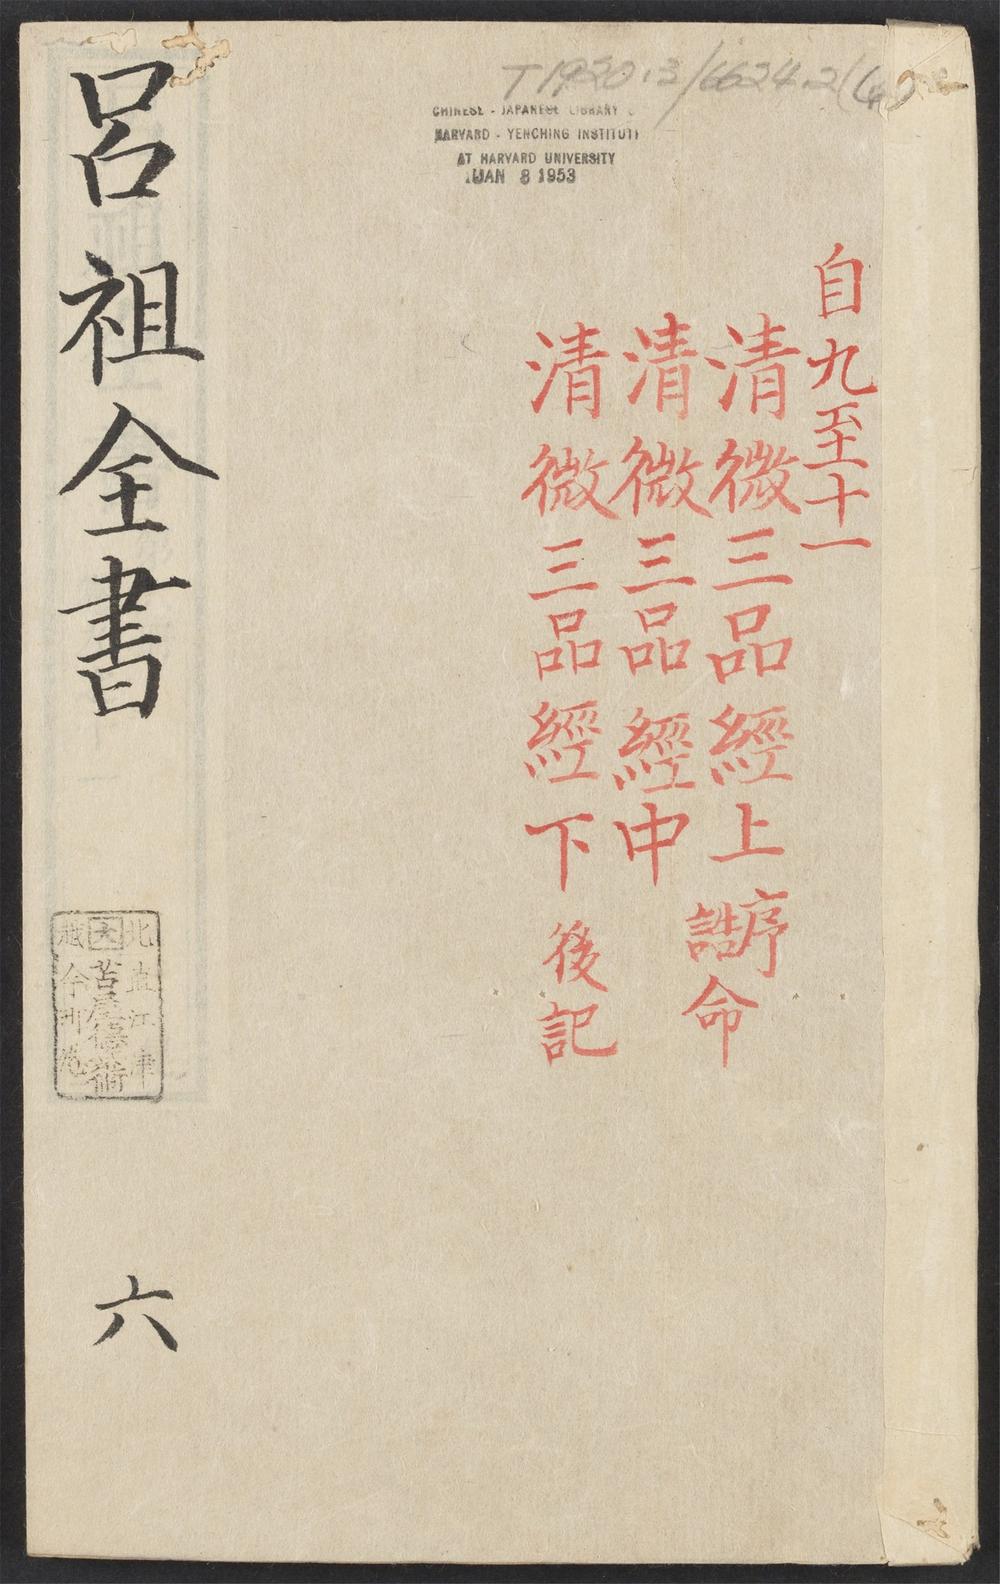 T1920.2/6624.2(6)
CHINESE - JAPANESE LIBRARY
HARVARD - YENCHING INSTITUTE
AT HARVARD UNIVERSITY
JAN 8 1953
自九至十一
清微三品經上 序 誥命
清微三品經中
清微三品經下 後記
呂祖全書
六